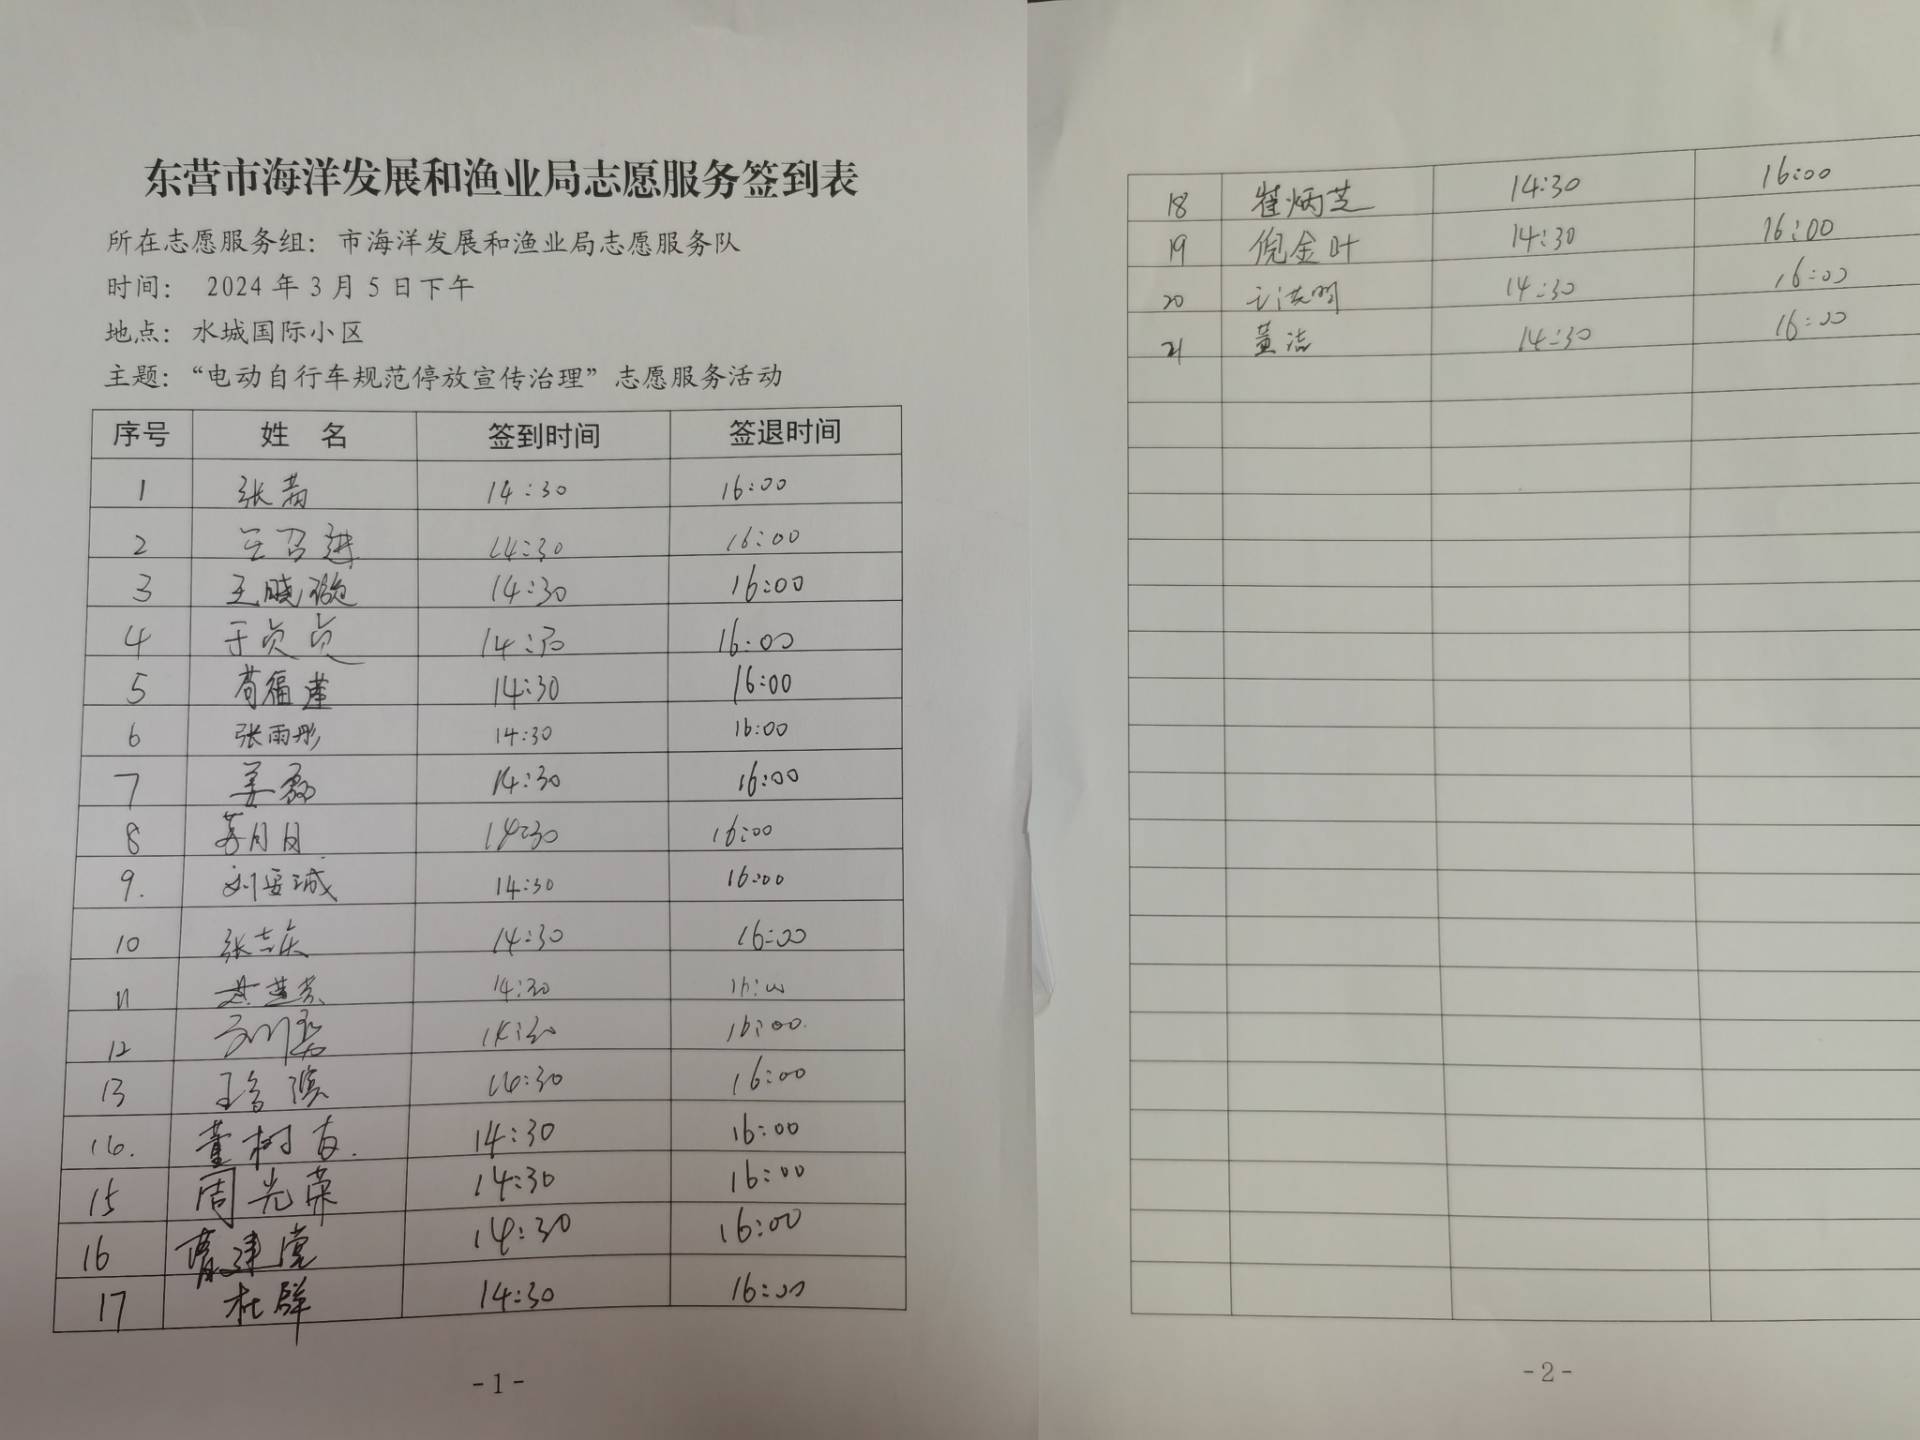 东营市海洋发展和渔业局志愿服务签到表
所在志愿服务组：市海洋发展和渔业局志愿服务队
时间： 2024年3月5日下午
地点：水城国际小区
主题：“电动自行车规范停放宣传治理”志愿服务活动
序号 姓 名 签到时间 签退时间
1 张 14:30 16:00
2 王召进 14:30 16:00
3 王晓璇 14:30 16:00
4 于贞贞 14:30 16:00
5 苟福莲 14:30 16:00
6 张雨彤 14:30 16:00
7 姜磊 14:30 16:00
8 月 14:30 16:00
9. 刘 诚 14:30 16:00
10 张志庆 14:30 16:00
11 14:30 16:00
12 刘 14:30 16:00
13 王 滨 14:30 16:00
14. 董树友. 14:30 16:00
15 周光荣 14:30 16:00
16 曹建党 14:30 16:00
17 杜群 14:30 16:00
-1-
18 崔炳芝 14:30 16:00
19 倪金叶 14:30 16:00
20 洪明 14:30 16:00
21 黄洁 14:30 16:00
-2-